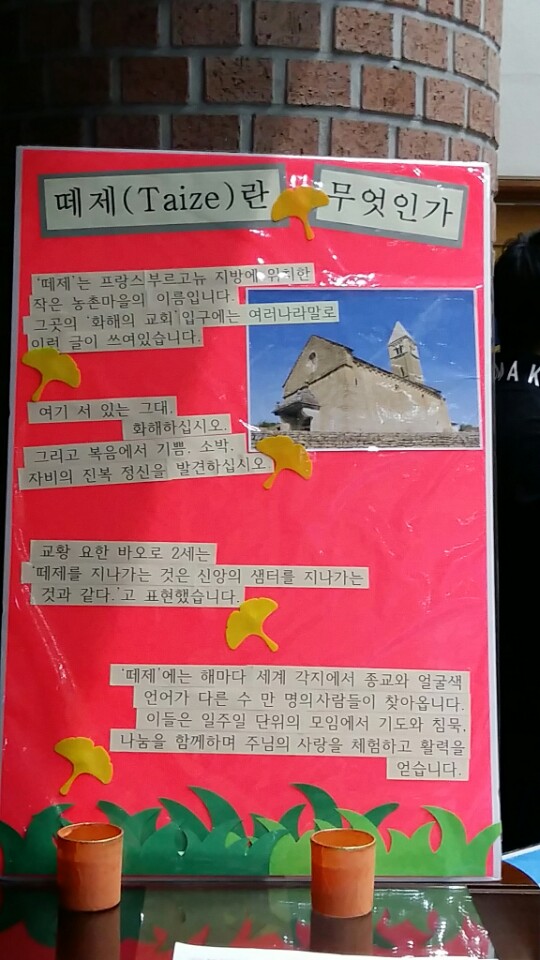 떼제(Taize)란 무엇인가
'떼제'는 프랑스 부르고뉴 지방에 위치한
작은 농촌마을의 이름입니다.
그곳의 '화해의 교회'입구에는 여러나라말로
이런 글이 쓰여있습니다.
여기 서 있는 그대,
화해하십시오.
그리고 복음에서 기쁨, 소박,
자비의 진복 정신을 발견하십시오.
교황 요한 바오로 2세는
'떼제를 지나가는 것은 신앙의 샘터를 지나가는
것과 같다.'고 표현했습니다.
'떼제'에는 해마다 세계 각지에서 종교와 얼굴색
언어가 다른 수 만 명의사람들이 찾아옵니다.
이들은 일주일 단위의 모임에서 기도와 침묵,
나눔을 함께하며 주님의 사랑을 체험하고 활력을
얻습니다.